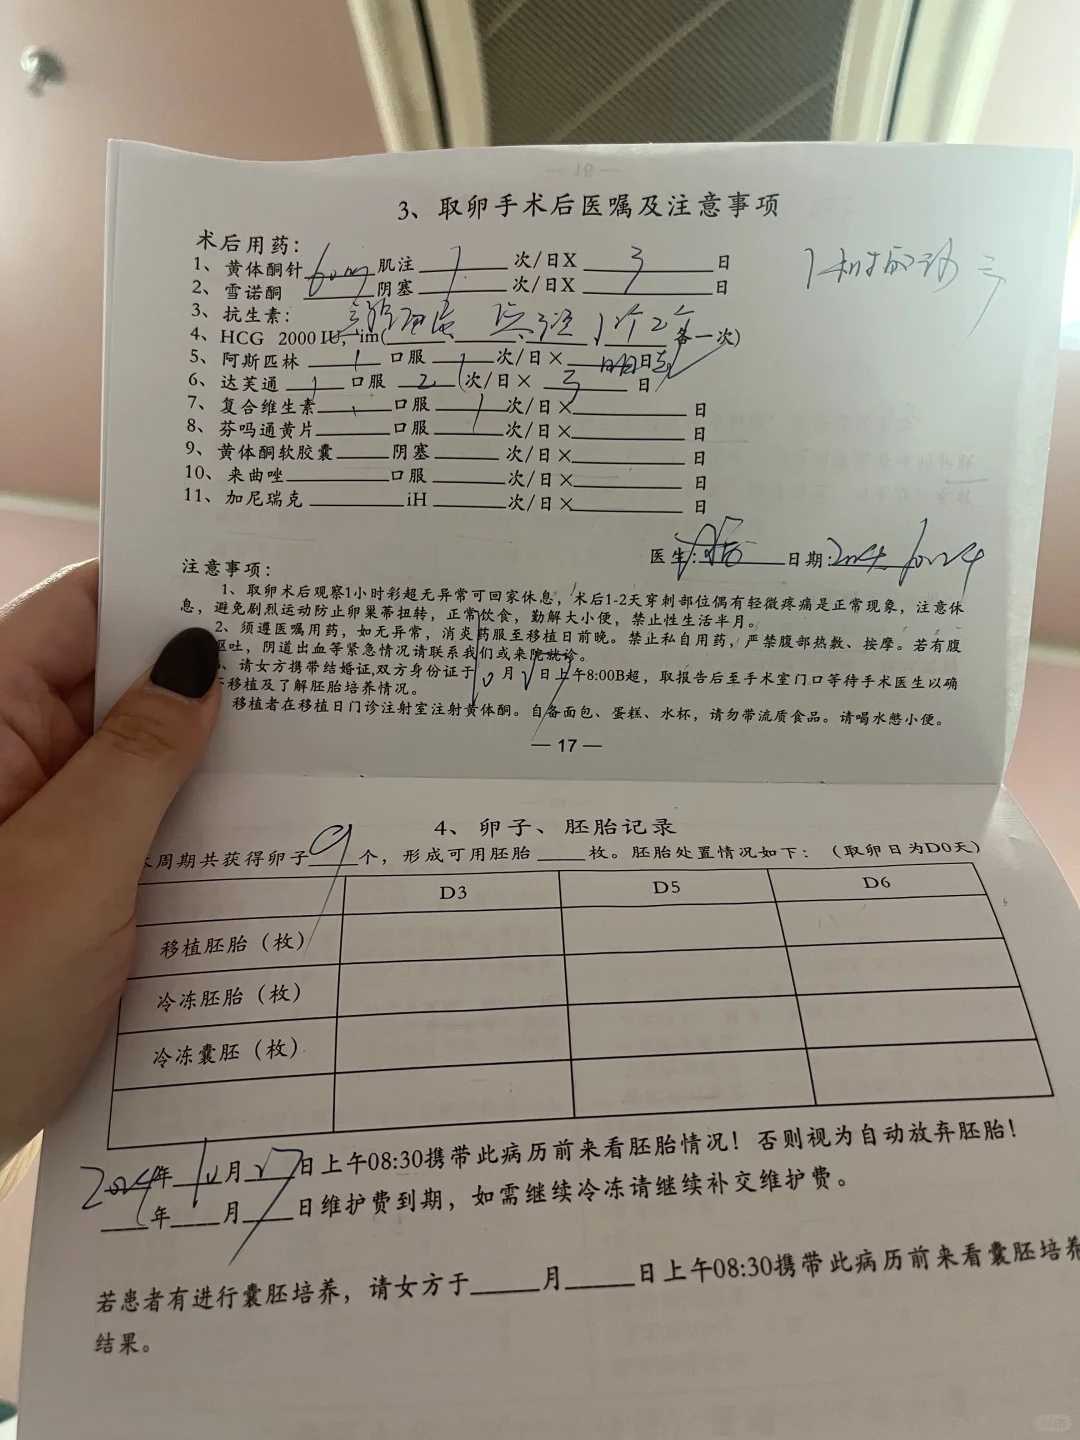 3、取卵手术后医嘱及注意事项
术后用药：
1、黄体酮针 60mg 肌注 1 次/日X 3 日
2、雪诺酮 阴塞 次/日X 日
3、抗生素：
4、HCG 2000 IU，im( 各一次)
5、阿斯匹林 1 口服 1 次/日× 日
6、达芙通 1 口服 2 次/日× 3 日
7、复合维生素 口服 1 次/日× 日
8、芬吗通黄片 口服 次/日× 日
9、黄体酮软胶囊 阴塞 次/日× 日
10、来曲唑 口服 次/日× 日
11、加尼瑞克 iH 次/日× 日
医生： 日期：2024 1024
注意事项：
1、取卵术后观察1小时彩超无异常可回家休息，术后1-2天穿刺部位偶有轻微疼痛是正常现象，注意休
息，避免剧烈运动防止卵巢蒂扭转，正常饮食，勤解大小便，禁止性生活半月。
2、须遵医嘱用药，如无异常，消炎药服至移植日前晚。禁止私自用药，严禁腹部热敷、按摩。若有腹
呕吐，阴道出血等紧急情况请联系我们或来院就诊。
、请女方携带结婚证,双方身份证于 10 月 27 日上午8:00B超，取报告后至手术室门口等待手术医生以确
移植及了解胚胎培养情况。
移植者在移植日门诊注射室注射黄体酮。自备面包、蛋糕、水杯，请勿带流质食品。请喝水憋小便。
— 17 —
4、卵子、胚胎记录
周期共获得卵子 9 个，形成可用胚胎 枚。胚胎处置情况如下：（取卵日为D0天）
D3 D5 D6
移植胚胎（枚）
冷冻胚胎（枚）
冷冻囊胚（枚）
2024 年 10 月 27 日上午08:30携带此病历前来看胚胎情况！否则视为自动放弃胚胎！
年 月 日维护费到期，如需继续冷冻请继续补交维护费。
若患者有进行囊胚培养，请女方于 月 日上午08:30携带此病历前来看囊胚培养
结果。